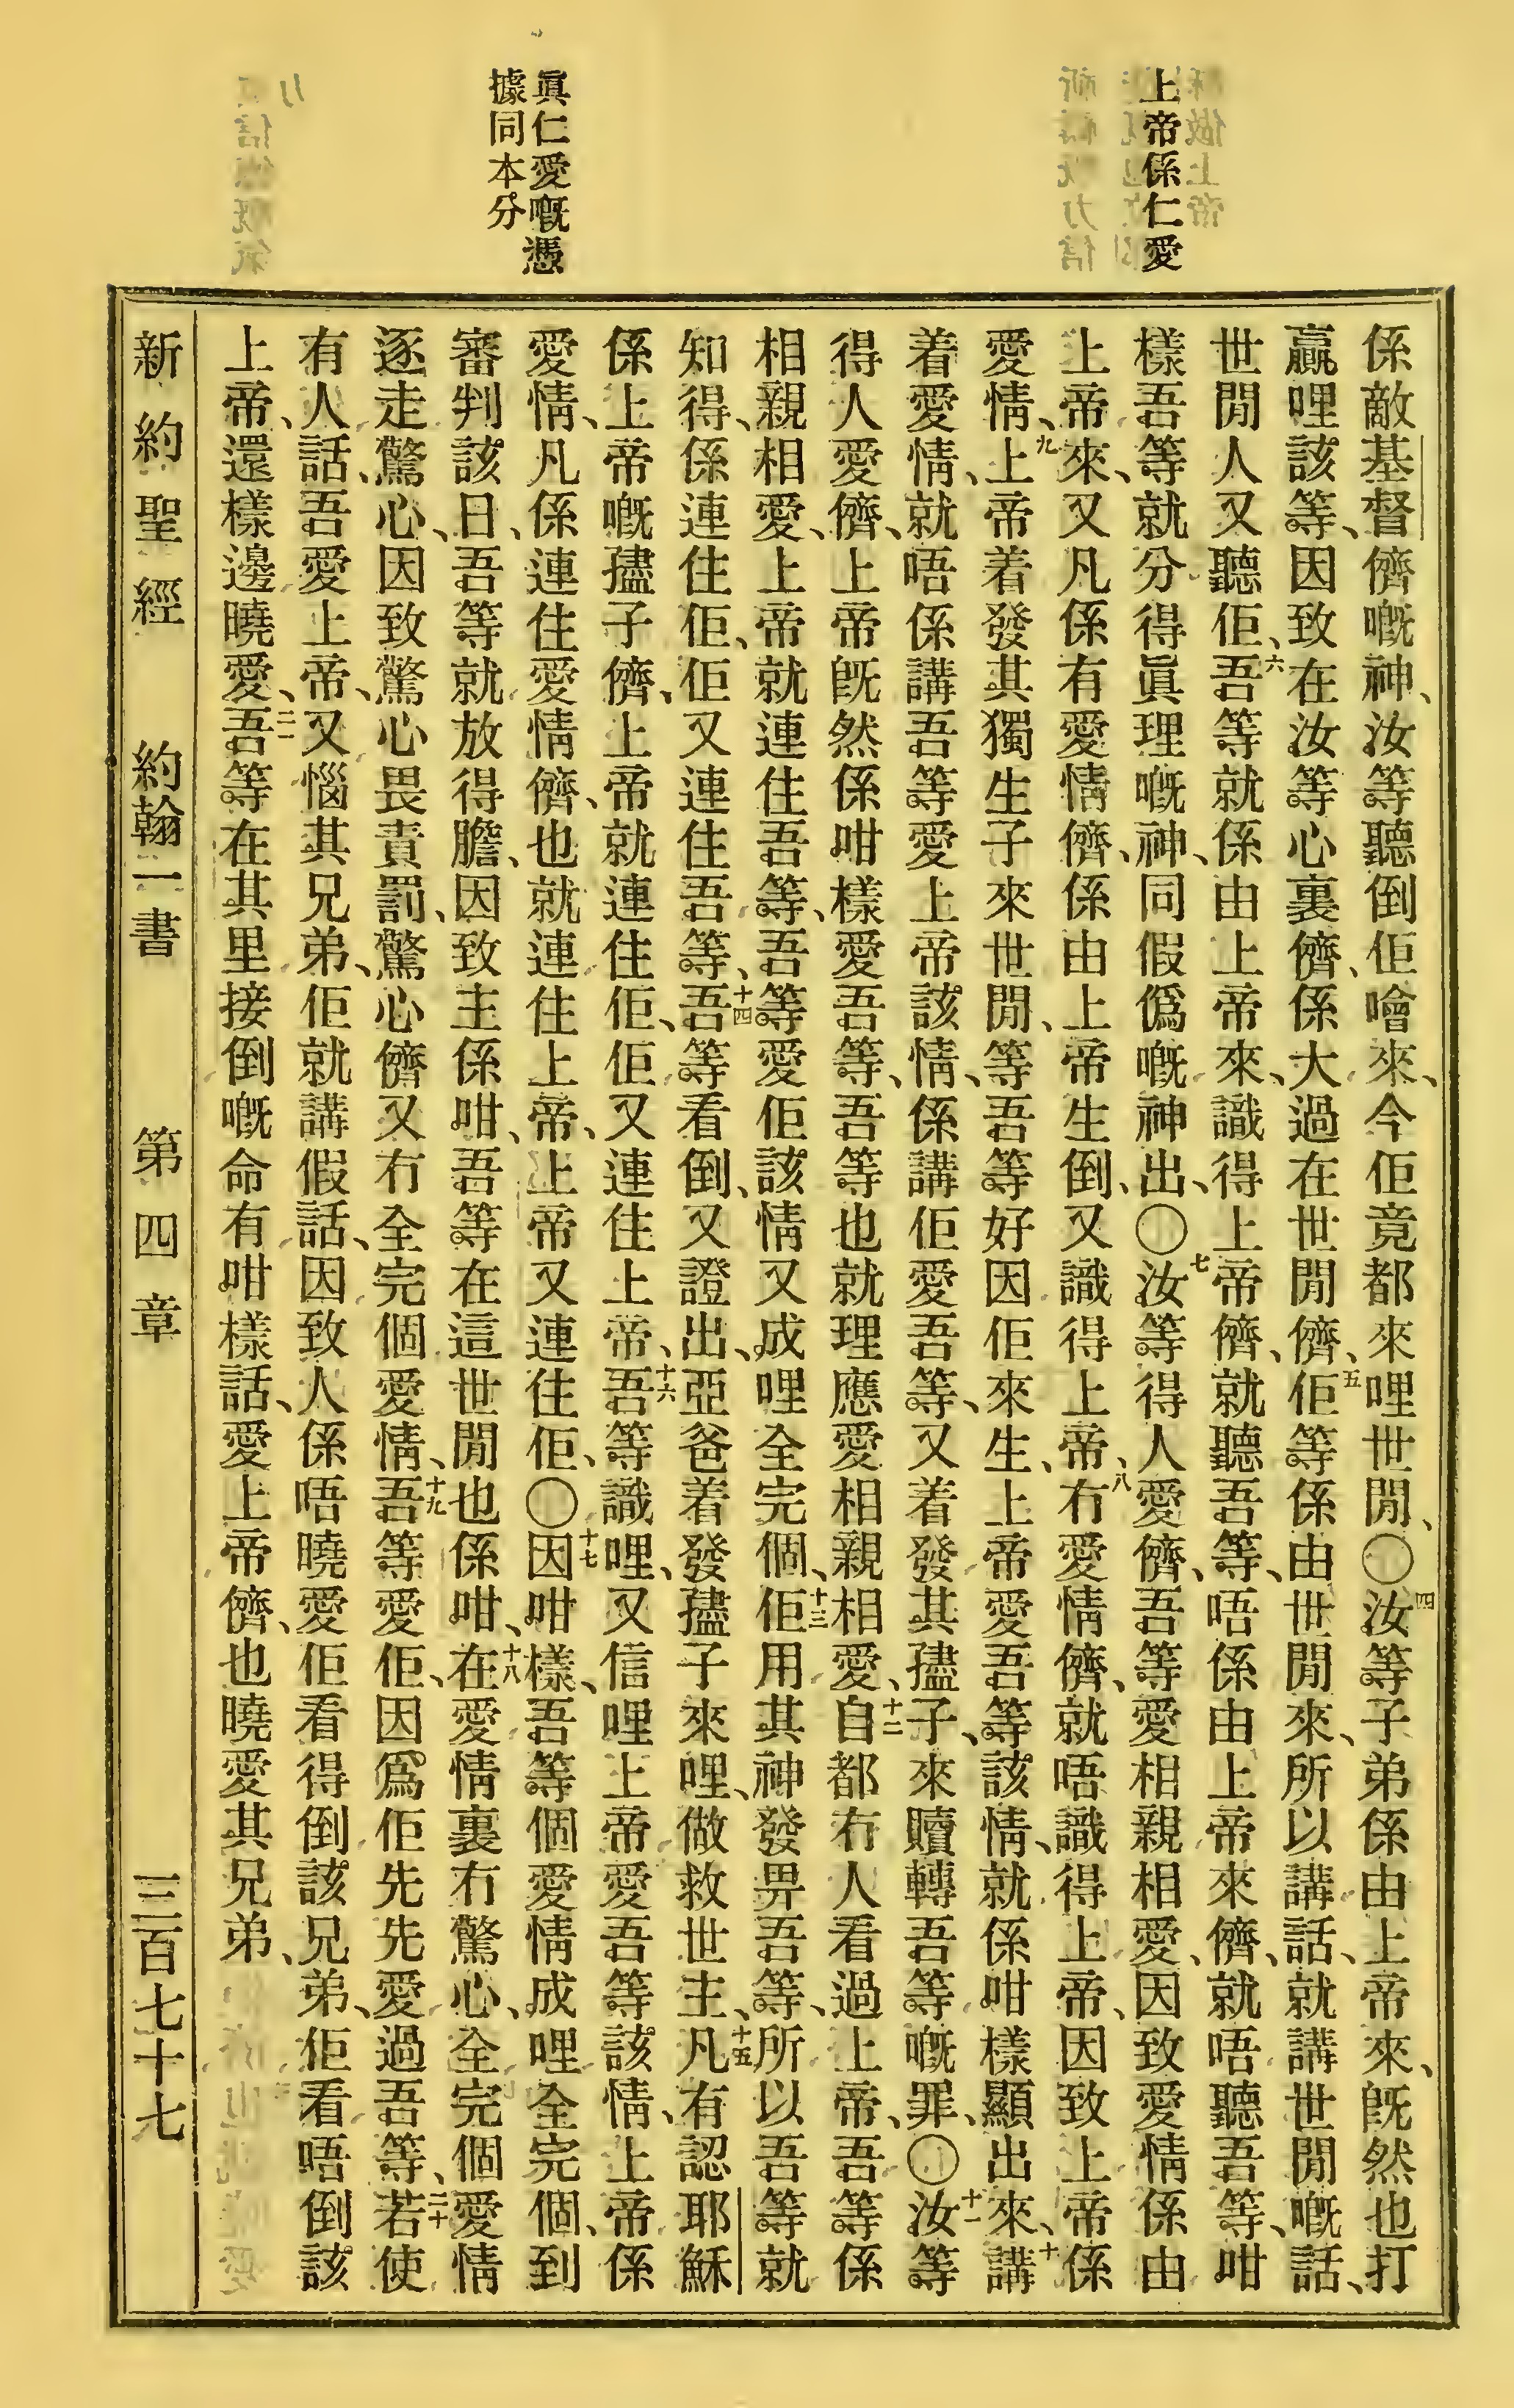 上帝係仁愛
眞仁愛嘅憑
據同本分
係敵基督儕嘅神、汝等聽倒佢噲來、今佢竟都來哩世間、〇四汝等子弟係由上帝來、旣然也打
贏哩該等、因致在汝等心裏儕、係大過在世間儕、五佢等係由世間來、所以講話、就講世間嘅話、
世間人又聽佢、六吾等就係由上帝來、識得上帝儕、就聽吾等、唔係由上帝來儕、就唔聽吾等、咁
樣吾等就分得眞理嘅神、同假僞嘅神出、〇七汝等得人愛儕、吾等愛相親相愛、因致愛情係由
上帝來、又凡係有愛情儕、係由上帝生倒、又識得上帝、八冇愛情儕、就唔識得上帝、因致上帝係
愛情、九上帝着發其獨生子來世間、等吾等好因佢來生、上帝愛吾等該情、就係咁樣顯出來、十講
着愛情、就唔係講吾等愛上帝該情、係講佢愛吾等、又着發其孻子、來贖轉吾等嘅罪、〇十一汝等
得人愛儕、上帝旣然係咁樣愛吾等、吾等也就理應愛相親相愛、十二自都冇人看過上帝、吾等係
相親相愛、上帝就連住吾等、吾等愛佢該情又成哩全完個、十三佢用其神發畀吾等、所以吾等就
知得、係連住佢、佢又連住吾等、十四吾等看倒、又證出、亞爸着發孻子來哩、做救世主、十五凡有認耶穌
係上帝嘅孻子儕、上帝就連住佢、佢又連住上帝、十六吾等識哩、又信哩上帝愛吾等該情、上帝係
愛情、凡係連住愛情儕、也就連住上帝、上帝又連住佢、〇十七因咁樣、吾等個愛情成哩全完個、到
審判該日、吾等就放得膽、因致主係咁、吾等在這世間也係咁、十八在愛情裏冇驚心、全完個愛情
逐走驚心、因致驚心畏責罰、驚心儕又冇全完個愛情、十九吾等愛佢、因爲佢先先愛過吾等、二十若使
有人話、吾愛上帝、又惱其兄弟、佢就講假話、因致人係唔曉愛佢看得倒該兄弟、佢看唔倒該
上帝、還樣邊曉愛、二一吾等在其里接倒嘅命有咁樣話、愛上帝儕、也曉愛其兄弟、
新約聖經　約翰一書　第四章　三百七十七